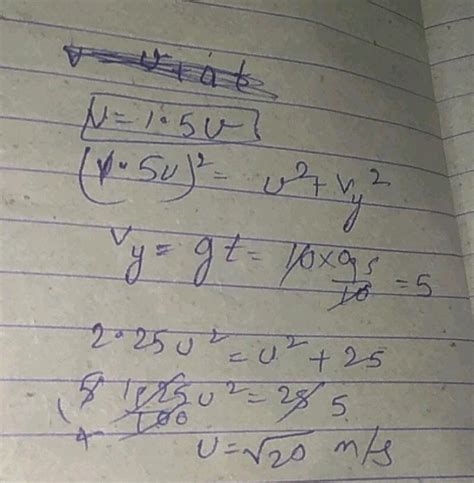 v = u + at
v = 1.5u
(1.5u)² = u² + v_y²
v_y = gt = 10 × 05/10 = 5
2.25u² = u² + 25
5 125/100 u² = 25 5
4
u = √20 m/s